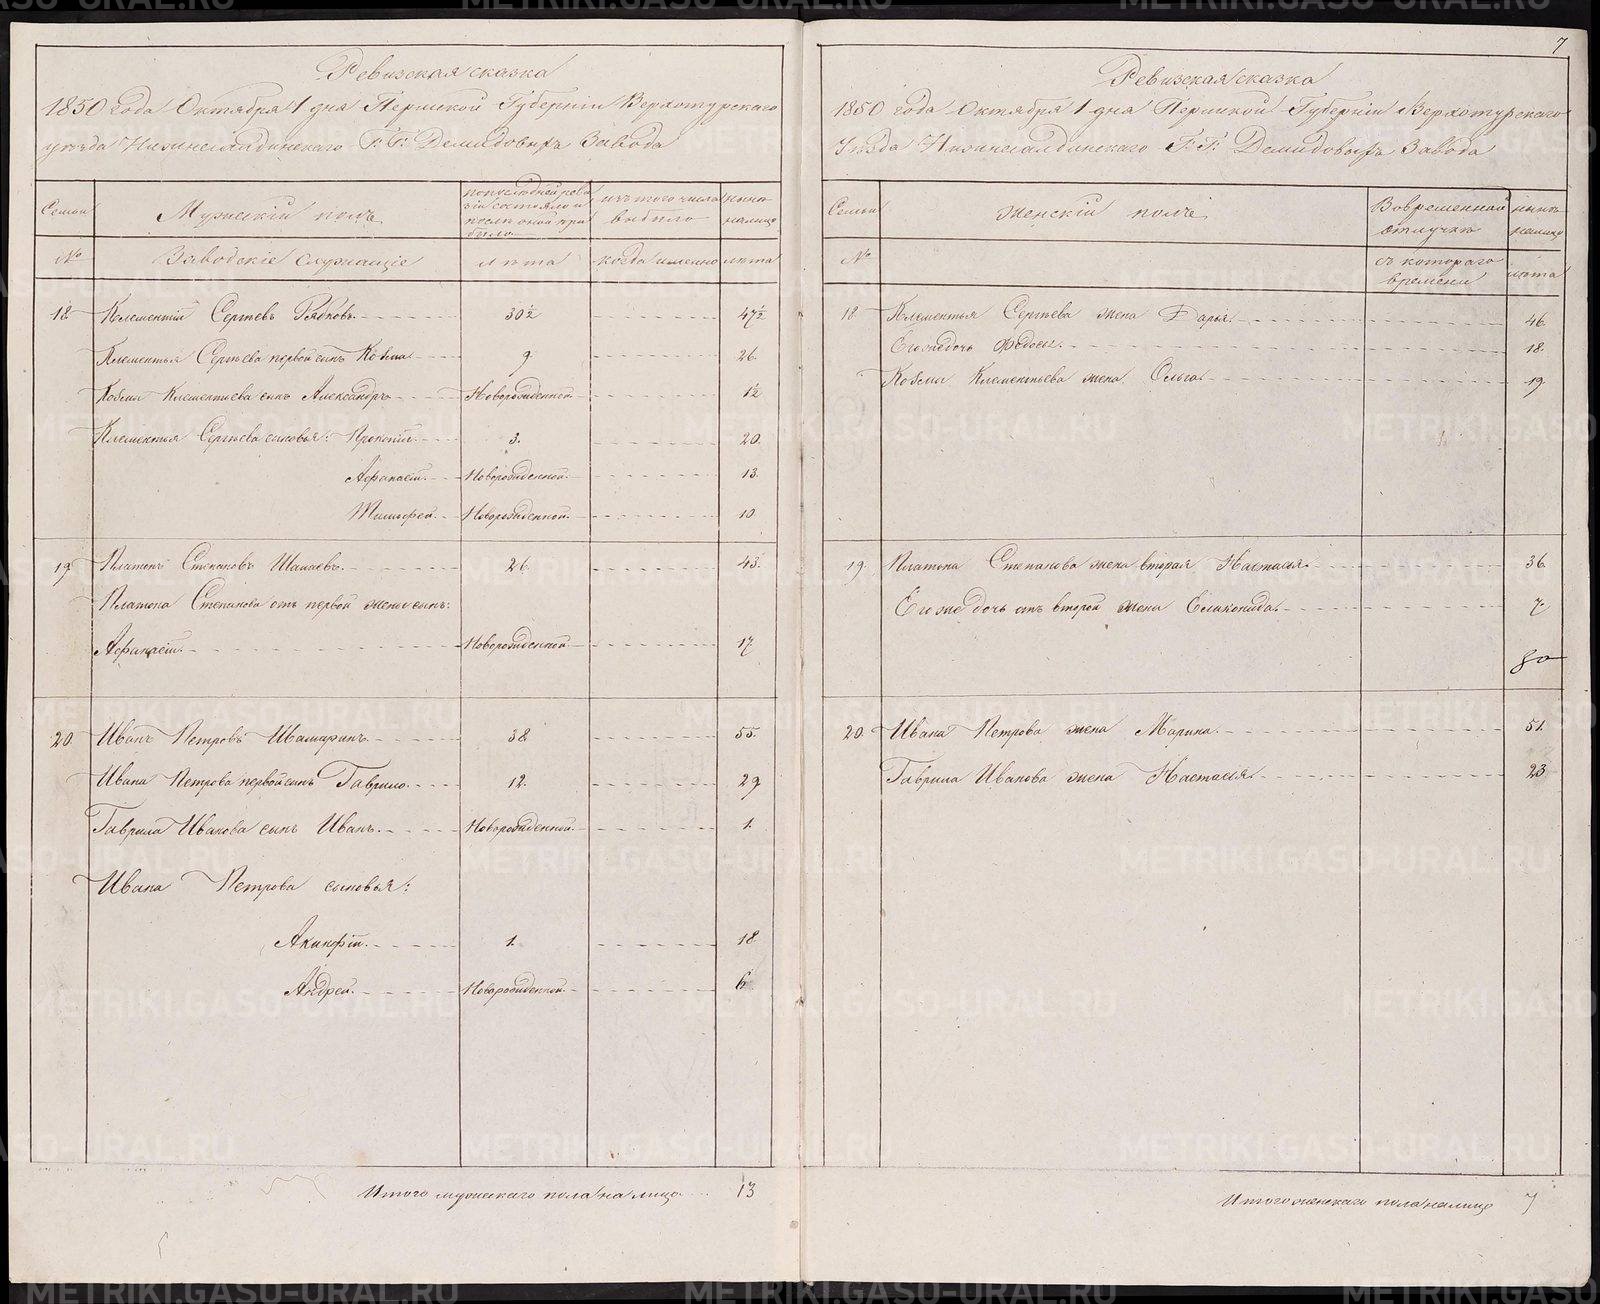 Ревизская сказка
1850 года Октября 1 дня Пермской Губерніи Верхотурскаго
уѣзда Нижнесалдинскаго Г.Г. Демидовыхъ Завода
Семьи
Мужескій полъ
по последней реви
зіи состояло и
послѣ оной при
было
изъ того числа
выбыло
нынѣ
на лицо
№
Заводскіе Служащіе
лѣта
когда именно
лѣта
18 Клементій Сергѣевъ Рябковъ. 30½ 47½
Клементья Сергѣева первой сынъ Козма 9. 26.
Козмы Клементьева сынъ Александръ Новорожденной 1½
Клементья Сергѣева сыновья: Прокопій. 3. 20.
Афанасій. Новорожденной. 13.
Тимофей. Новорожденной. 10.
19. Платонъ Степановъ Шамаевъ. 26. 43.
Платона Степанова отъ первой жены сынъ:
Афанасій. Новорожденной 17.
20. Иванъ Петровъ Шамаринъ. 38. 55.
Ивана Петрова первой сынъ Гаврило. 12. 29.
Гаврила Иванова сынъ Иванъ. Новорожденной. 1.
Ивана Петрова сыновья:
Акинфій. 1. 18.
Андрей. Новорожденной. 6.
Итого мужескаго пола на лицо. 13
7
Ревизская сказка
1850 года Октября 1 дня Пермской Губерніи Верхотурскаго
Уѣзда Нижнесалдинскаго Г.Г. Демидовыхъ Завода
Семьи
Женскій полъ
Во временной
отлучкѣ
нынѣ
на лицо
№
съ котораго
времени
лѣта
18 Клементья Сергѣева жена Дарья. 46.
Его же дочь Федосья. 18.
Козмы Клементьева жена Ольга. 19.
19. Платона Степанова жена вторая Настасья. 36.
Его же дочь отъ второй жены Еликонида. 7.
20. Ивана Петрова жена Марина. 51.
Гаврила Иванова жена Настасья. 23
Итого женскаго пола на лицо 7
METRIKI.GASO-URAL.RU